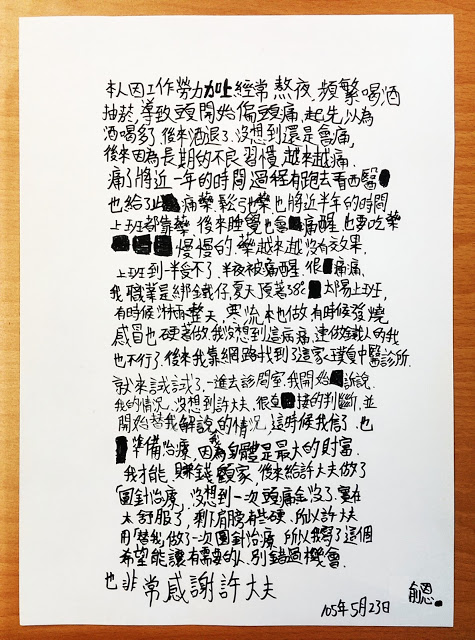 本人因工作勞力加上經常熬夜，頻繁喝酒
抽菸，導致頭開始偏頭痛，起先以為
酒喝多了，後來酒退了，沒想到還是會痛，
後來因為長期的不良習慣，越來越痛．
痛了將近一年的時間過程有跑去看西醫
也給了止痛藥，鬆弛藥也將近半年的時間
上班都靠藥，後來睡覺也會痛醒，也要吃藥
慢慢的，藥越來越沒有效果．
上班到一半受不了，半夜被痛醒，很痛痛．
我職業是綁鐵仔，夏天頂著38°太陽上班，
有時候淋雨整天，寒流來也做，有時候發燒
感冒也硬著做，我沒想到這病痛，連做鐵人的我
也不行了，後來我靠網路找到了這家璞中醫診所．
就來試試了，一進去診間室，我開始訴說
我的情況，沒想到許大夫，很直接的判斷，並
開始替我解說，的情況，這時候我信了，也
準備治療，因為身體是最大的財富．
我才能，賺錢顧家，後來給許大夫做了
圓針治療，沒想到一次頭痛全沒了，實在
太舒服了，剩下肩膀有些硬，所以許大夫
用替我，做了一次圓針治療，所以我寫了這個
希望能讓有需要的人，別錯過機會．
也非常感謝許大夫
105年5月23日